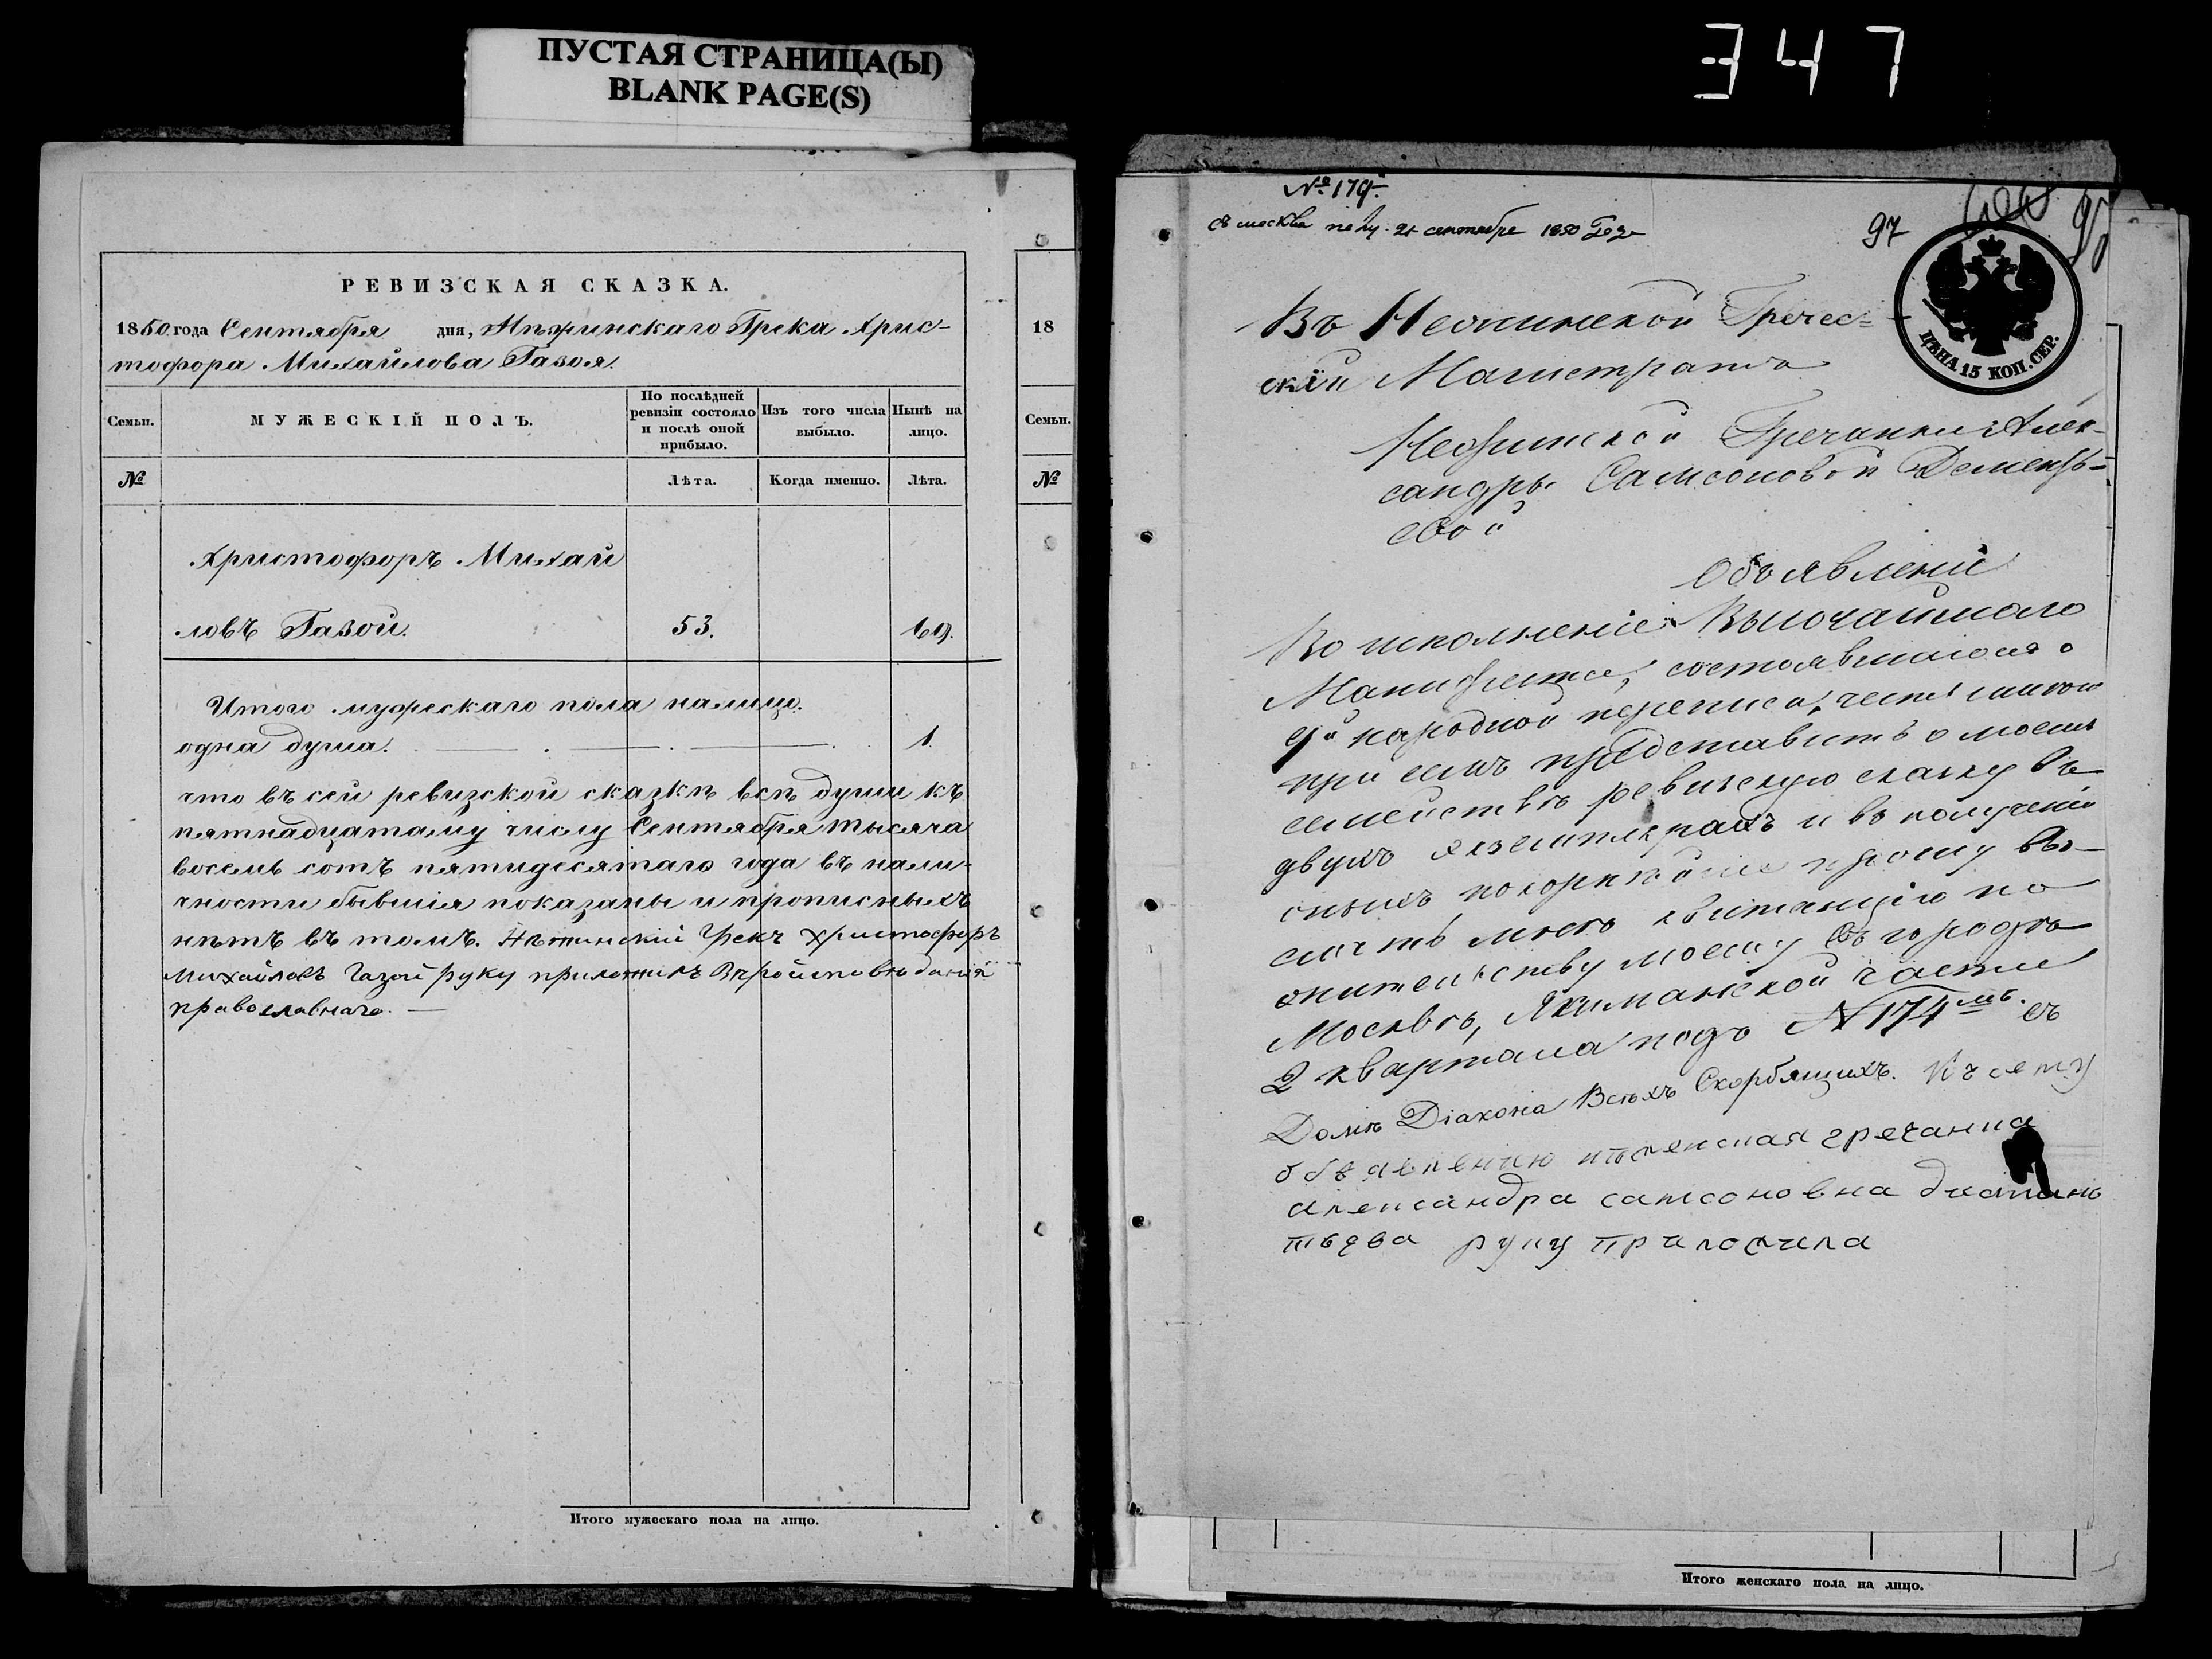 ПУСТАЯ СТРАНИЦА(Ы)
BLANK PAGE(S)
347
РЕВИЗСКАЯ СКАЗКА.
1850 года Сентября дня, Нѣжинскаго Грека Хрис-
тофора Михайлова Газоя.
Семьи.
МУЖЕСКІЙ ПОЛЪ.
По послѣдней ревизіи состояло и послѣ оной прибыло.
Изъ того числа выбыло.
Нынѣ на лицо.
№
Лѣта.
Когда именно.
Лѣта.
Христофоръ Михай
ловъ Газой. 53. 69.
Итого мужескаго пола налицо.
одна душа. 1.
что въ сей ревизской сказкѣ всѣ души къ
пятнадцатому числу Сентября тысяча
восемь сотъ пятидесятаго года въ нали-
чности бывшія показаны и прописныхъ
нѣтъ въ томъ. Нѣжинскій Грекъ Христофоръ
Михайловъ Газой руку приложилъ
православнаго.
Итого мужескаго пола на лицо.
18
Семьи.
№
№ 179.
съ москва 21 сентебре 1850
97
ЦѢНА 15 КОП. СЕР.
Въ Нежинской Гречес=
скій Магистратъ
Нежинской Гречанки Алек-
сандры Самсоновой Дементь-
евой
Объявленіе
Во исполненіе Высочайшаго
Манифеста, состоявшагося о
9й народной переписи, честь имею
при семъ представить о моемъ
семействе ревизскую сказку въ
двухъ экземплярахъ и въ полученіи
оныхъ покорнейше прошу вы-
слать мне квитанцію по
жительству моему въ городе
Москве, Якиманской части
2 квартала подъ № 174мъ. въ
Доме Діакона Всехъ Скорбящихъ. Къ сему
объявленію неженская гречанка
александра самсоновна
тьева руку приложила
Итого женскаго пола на лицо.